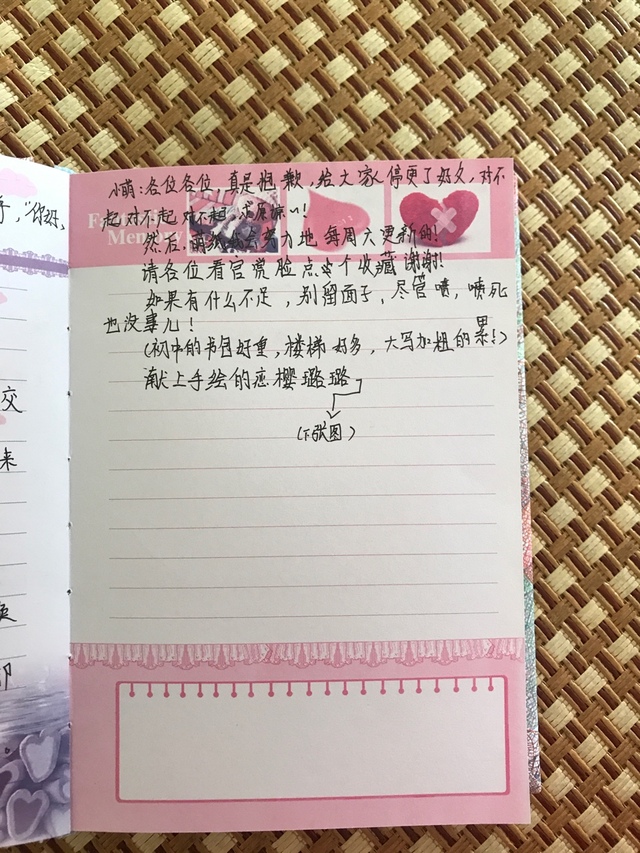 小萌:各位各位,真是抱歉,给大家停更了好久,对不
起对不起对不起 求原谅……!
然后,萌然然会努力地每周六更新的!
请各位看官赏脸点个收藏,谢谢!
如果有什么不足,别留面子,尽管喷,喷死
也没事儿!
(初中的书包好重,楼梯好多,大写加粗的累!)
献上手绘的恋樱璐璐
(下张图)
Memory
手,"你好,
交
来